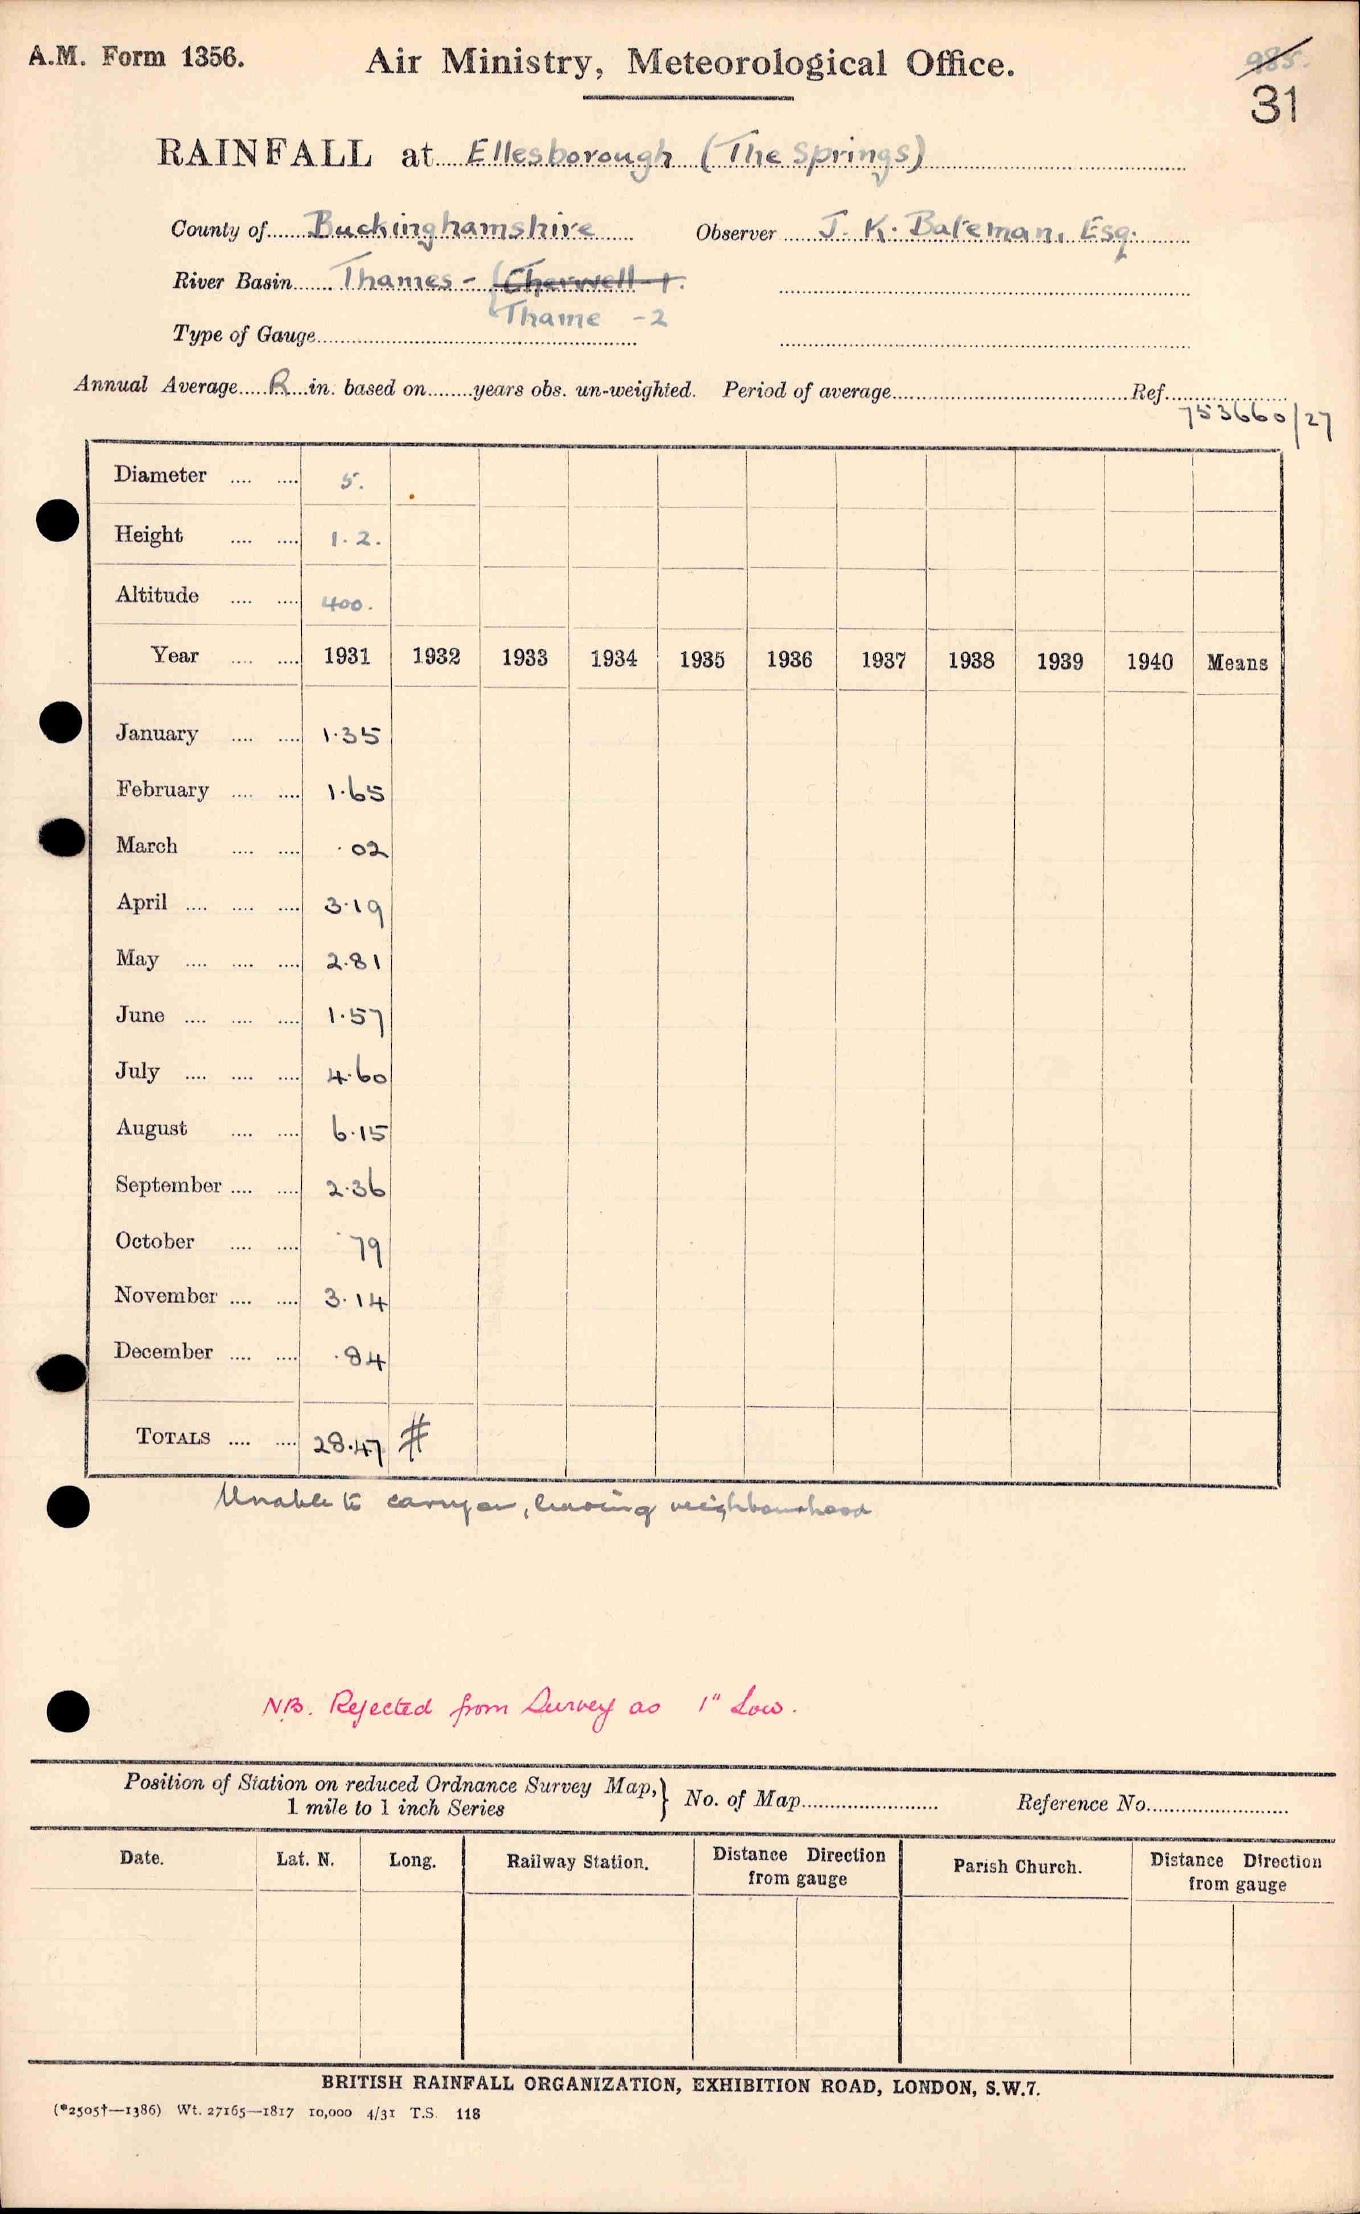 A.M. Form 1356.
Air Ministry, Meteorological Office.
985.
31
RAINFALL at Ellesborough (The Springs)
County of Buckinghamshire Observer J. K. Bateman, Esq.
River Basin Thames - Cherwell - 1.
Thame - 2
Type of Gauge
Annual Average R in. based on years obs. un-weighted. Period of average Ref.
753660/27
Diameter 5.
Height 1.2.
Altitude 400.
Year 1931 1932 1933 1934 1935 1936 1937 1938 1939 1940 Means
January 1.35
February 1.65
March .02
April 3.19
May 2.81
June 1.57
July 4.60
August 6.15
September 2.36
October .79
November 3.14
December .84
TOTALS 28.47 #
Unable to carry on, leaving neighbourhood
N.B. Rejected from Survey as 1" Low.
Position of Station on reduced Ordnance Survey Map,} No. of Map Reference No.
1 mile to 1 inch Series
Date. Lat. N. Long. Railway Station. Distance Direction from gauge Parish Church. Distance Direction from gauge
BRITISH RAINFALL ORGANIZATION, EXHIBITION ROAD, LONDON, S.W.7.
(*2505†—1386) Wt. 27165—1817 10,000 4/31 T.S. 118